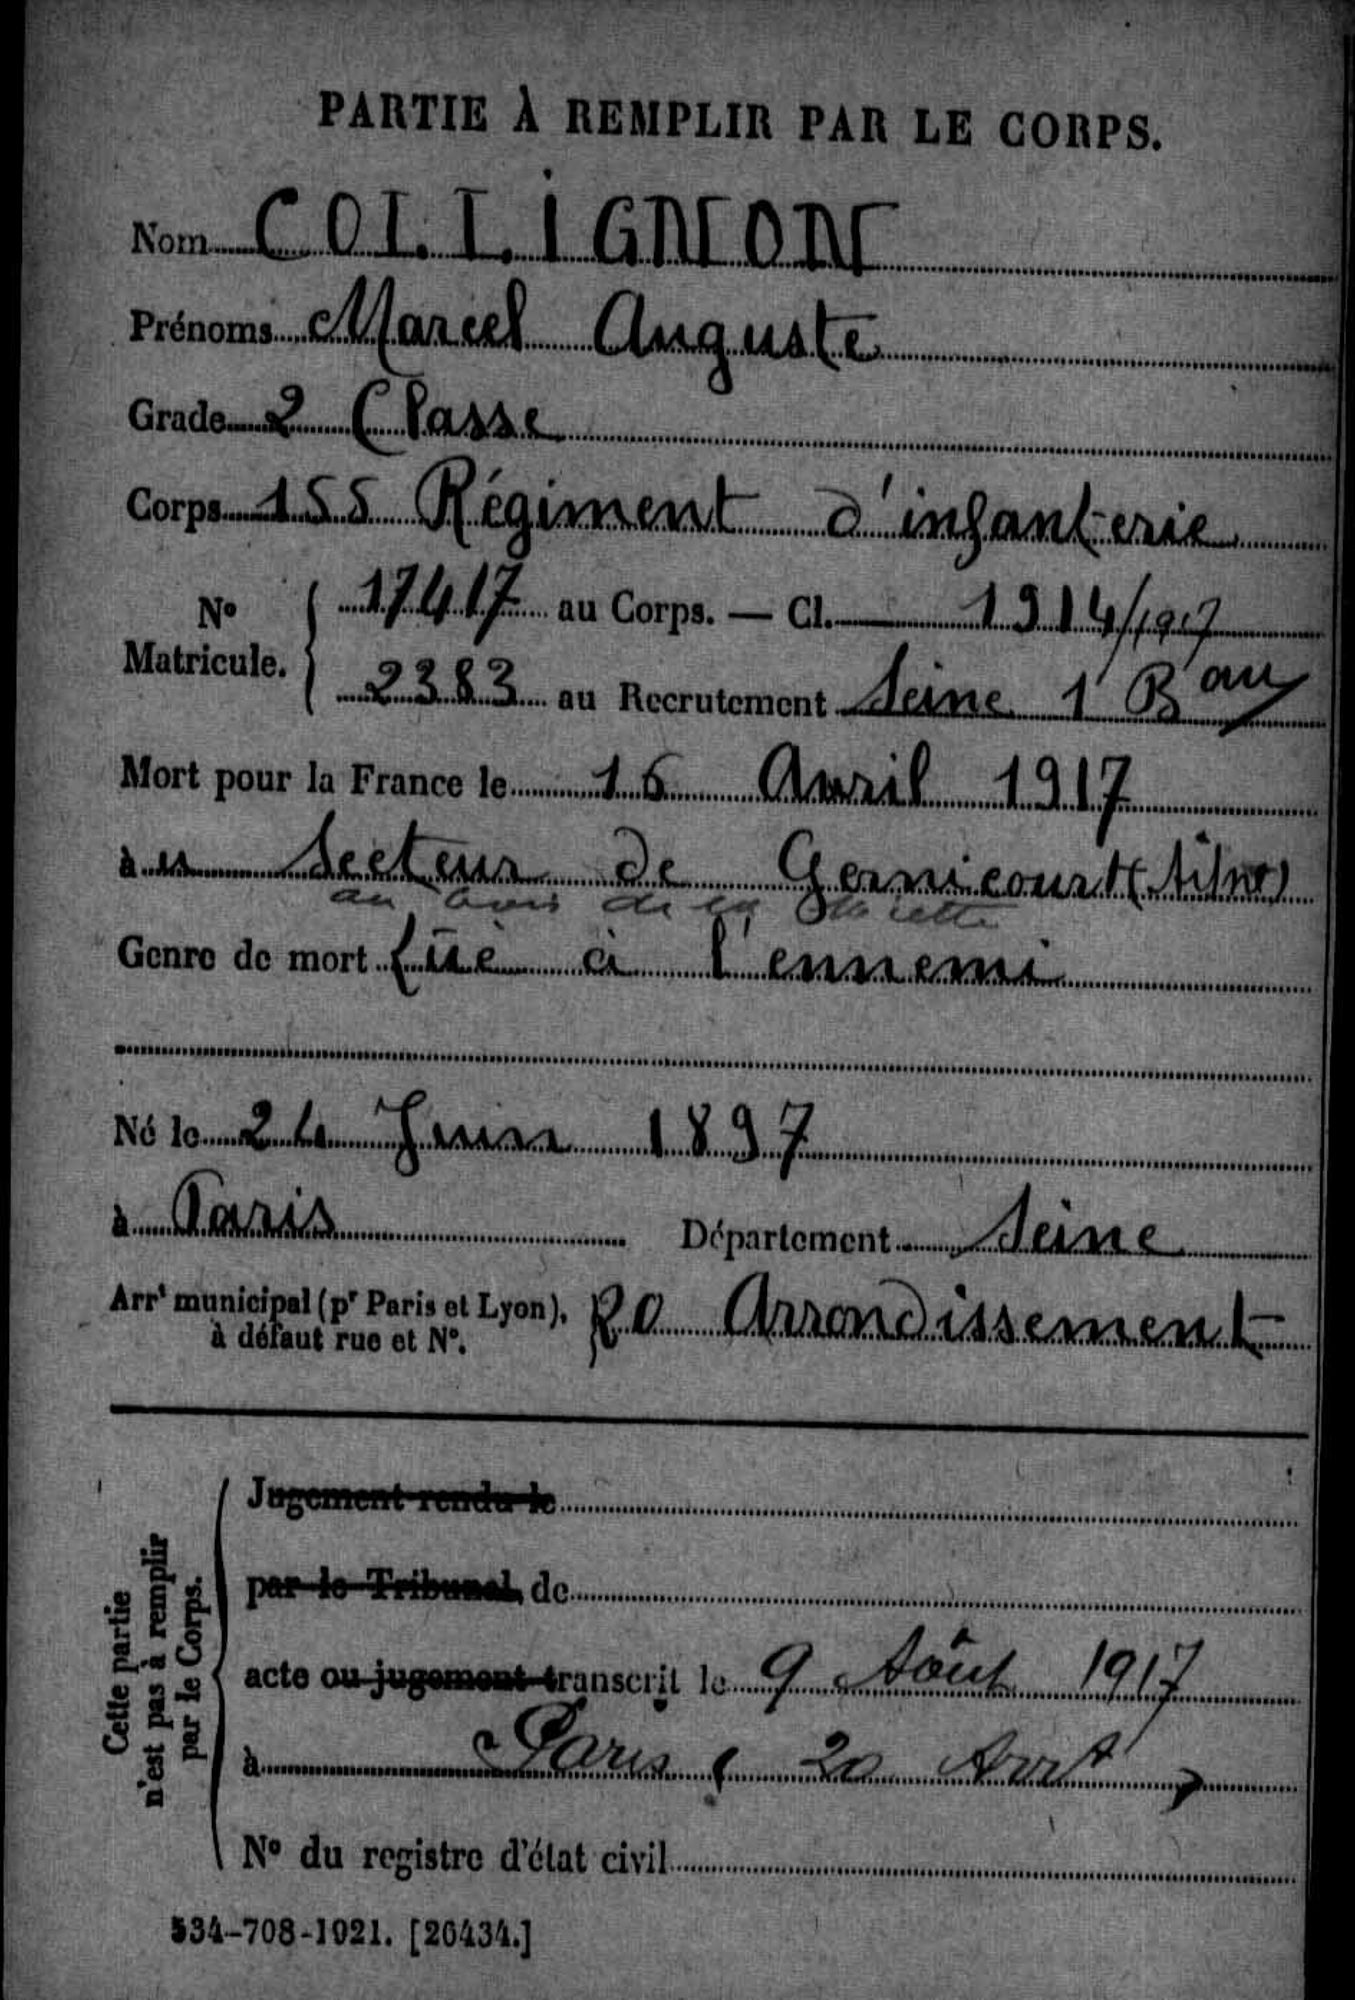 PARTIE À REMPLIR PAR LE CORPS.
Nom COLLIGNON
Prénoms Marcel Auguste
Grade 2 Classe
Corps 155 Régiment d'infanterie
N° Matricule. 17417 au Corps. — Cl. 1914/1917
2383 au Recrutement Seine 1 Bau
Mort pour la France le 16 Avril 1917
à Secteur de Gernicourt (Aisne)
au bois de la Miette
Genre de mort tué à l'ennemi
Né le 24 Juin 1897
à Paris Département Seine
Arrt municipal (pr Paris et Lyon), 20 Arrondissement
à défaut rue et N°.
Cette partie
n'est pas à remplir
par le Corps.
Jugement rendu le
par le Tribunal de
acte ou jugement transcrit le 9 Août 1917
à Paris (20 Arrt)
N° du registre d'état civil
534-708-1921. [26434.]